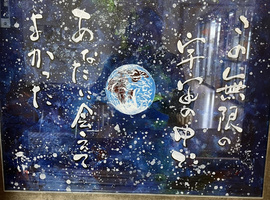 この無限の
宇宙の中で
あなたに会えて
よかった